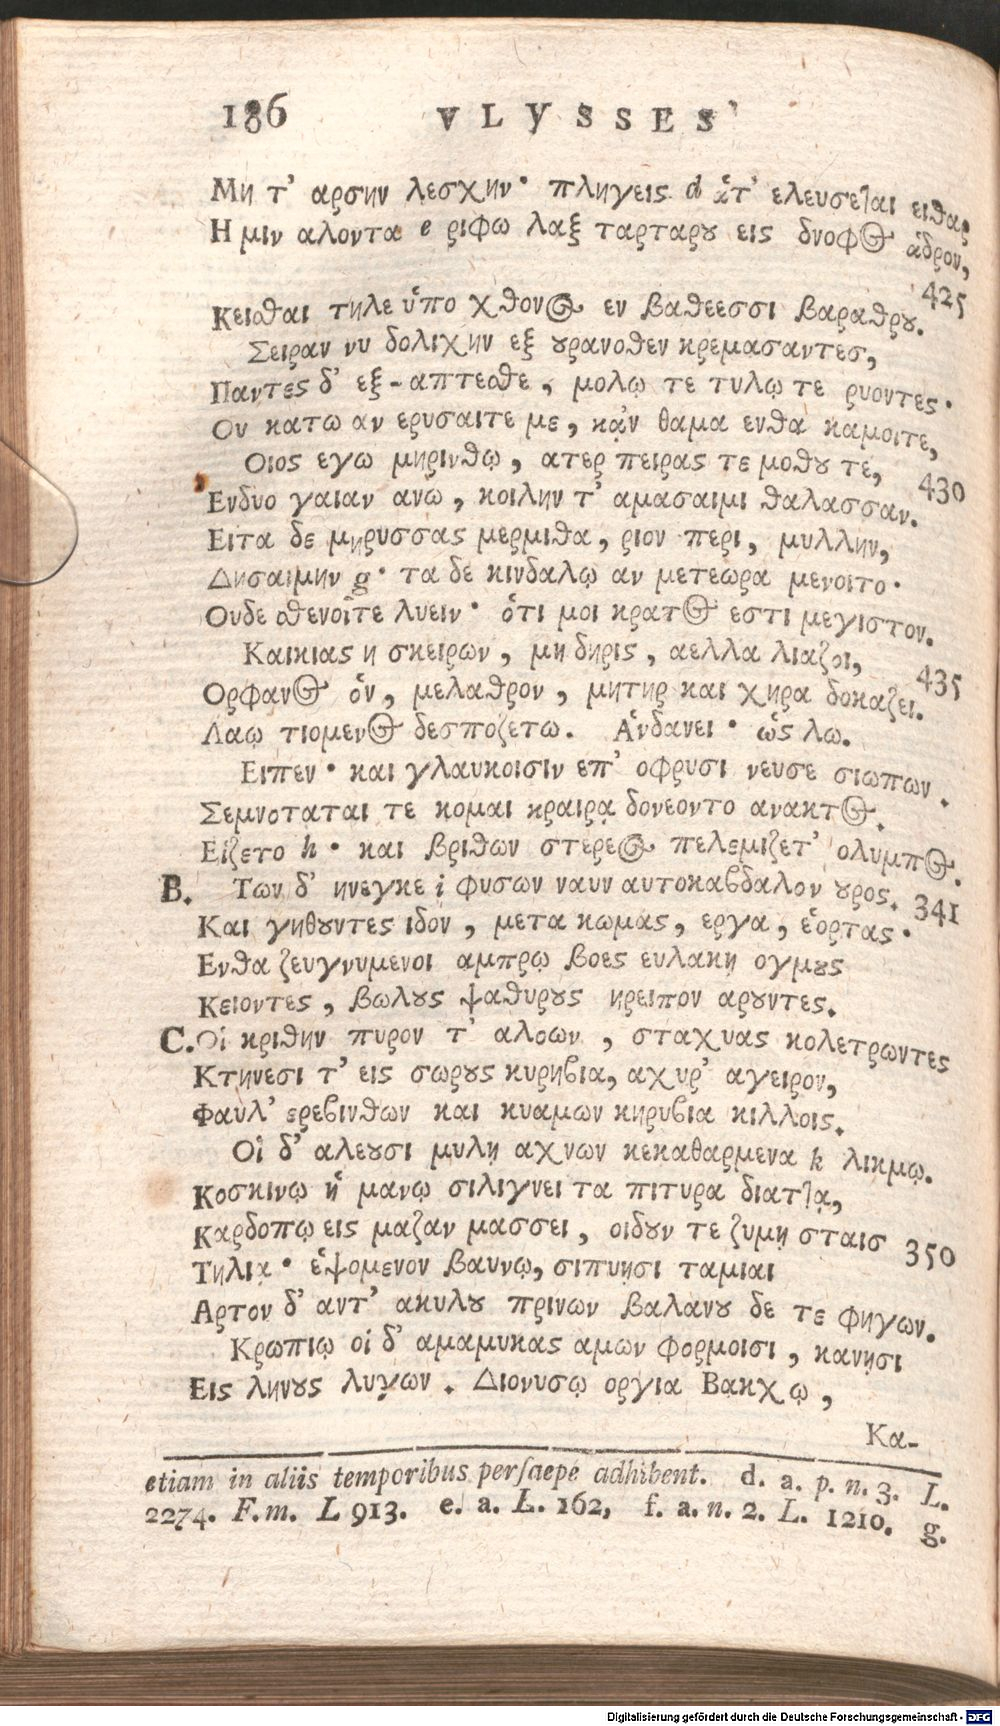 186 VLYSSES'
Μη τ' αρσην λεσχην· πληγεις d ȣ̔τ' ελευσεται ειθαρ
Η μιν αλοντα e ριφω λαξ ταρταρȣ εις δνοφος ἁδρον,
425
Κεισθαι τηλε ὑπο χθονος εν βαθεεσσι βαραθρȣ.
Σειραν νυ δολιχην εξ ȣρανοθεν κρεμασαντες,
Παντες δ' εξ-απτεσθε, μολῳ τε τυλῳ τε ρυοντες·
Ου κατω αν ερυσαιτε με, κᾀν θαμα ενθα καμοιτε,
Οιος εγω μηρινθῳ, ατερ πειρας τε μοθȣ τε,
430
Ενδυο γαιαν ανω, κοιλην τ' αμασαιμι θαλασσαν.
Ειτα δε μηρυσσας μερμιθα, ριον περι, μυλλην,
Δησαιμην g· τα δε κινδαλῳ αν μετεωρα μενοιτο·
Ουδε σθενοῖτε λυειν· ὁτι μοι κρατος εστι μεγιστον.
Καικιας η σκειρων, μη δηρις, αελλα λιαζοι,
435
Ορφανος ὁν, μελαθρον, μητηρ και χηρα δοκαζει.
Λαῳ τιομενος δεσποζετω. Ἁνδανει· ὡς λω.
Ειπεν· και γλαυκοισιν επ' οφρυσι νευσε σιωπων.
Σεμνοταται τε κομαι κραιρᾳ δονεοντο ανακτος.
Εἱζετο h· και βριθων στερεος πελεμιζετ' ολυμπος.
B. Των δ' ηνεγκε i φυσων ναυν αυτοκαβδαλον ȣρος. 341
Και γηθȣντες ιδον, μετα κωμας, εργα, ἑορτας·
Ενθα ζευγνυμενοι αμπρῳ βοες ευλακῃ ογμȣς
Κειοντες, βωλȣς ψαθυρȣς ηρειπον αρȣντες.
C. Οἱ κριθην πυρον τ' αλοων, σταχυας κολετρωντες
Κτηνεσι τ' εις σωρȣς κυρηβια, αχυρ' αγειρον,
Φαυλ' ερεβινθων και κυαμων κηρυβια κιλλοις.
Οἱ δ' αλεȣσι μυλῃ αχνων κεκαθαρμενα k λικμῳ.
Κοσκινῳ ἡ μανῳ σιλιγνει τα πιτυρα διαττᾳ,
Καρδοπῳ εις μαζαν μασσει, οιδȣν τε ζυμῃ σταις 350
Τηλιᾳ· ἑψομενον βαυνῳ, σιπυῃσι ταμιαι
Αρτον δ' αντ' ακυλȣ πρινων βαλανȣ δε τε φηγων.
Κρωπιῳ οἱ δ' αμαμυκας αμων φορμοισι, κανῃσι
Εις ληνȣς λυγων. Διονυσῳ οργια Βακχῳ,
Κα-
etiam in aliis temporibus persaepe adhibent. d. a. p. n. 3. L.
2274. F. m. L 913. e. a. L. 162, f. a. n. 2. L. 1210. g.
Digitalisierung gefördert durch die Deutsche Forschungsgemeinschaft - DFG